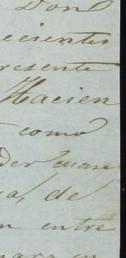 Don
ecientos
resente
Hacien
como
der cuan
va, de
n entre